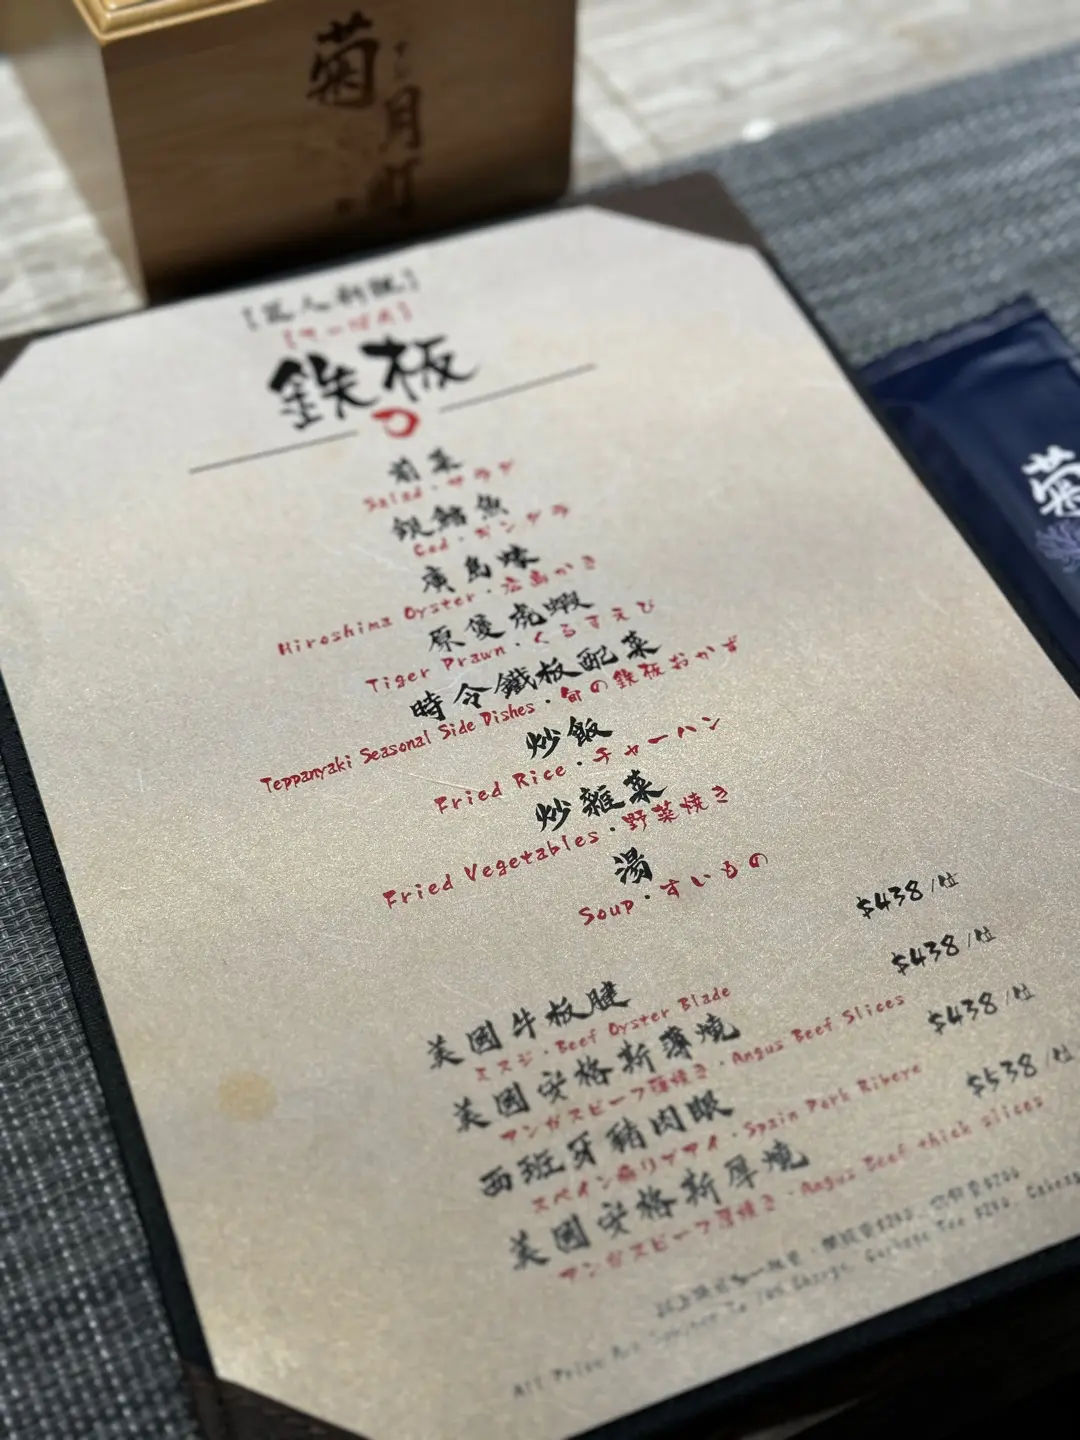 菊月町
鉄板
前菜
Salad・サラダ
銀鱈魚
Cod・ギンダラ
廣島蠔
Hiroshima Oyster・広島かき
原隻虎蝦
Tiger Prawn・くるまえび
時令鐵板配菜
Teppanyaki Seasonal Side Dishes・旬の鉄板おかず
炒飯
Fried Rice・チャーハン
炒雜菜
Fried Vegetables・野菜焼き
湯
Soup・すいもの
$438/位
美國牛板腱
ミスジ・Beef Oyster Blade
$438/位
美國安格斯薄燒
アンガスビーフ薄焼き・Angus Beef Slices
$438/位
西班牙豬肉眼
スペイン・Spain Pork Ribeye
$538/位
美國安格斯厚燒
アンガスビーフ厚焼き・Angus Beef thick slices
All Price Are Subject To 10% Charge,
菊